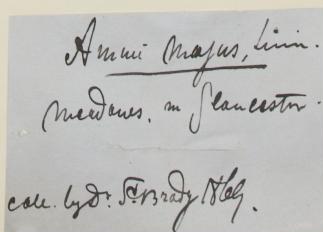 Ammi majus, Linn.
Meadows, in Gloucester.
coll. by Dr. St. Brady